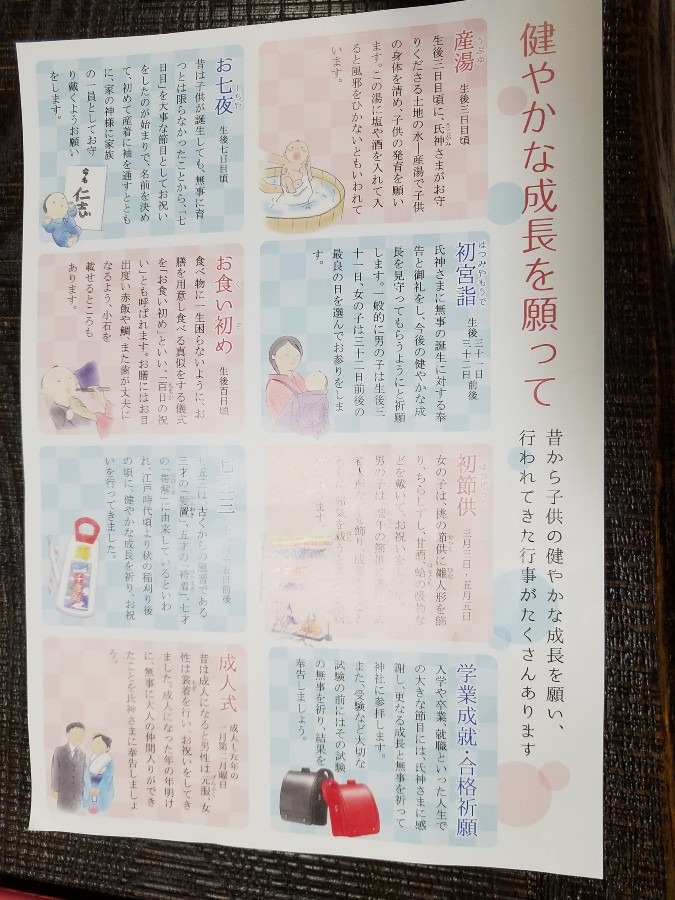 健やかな成長を願って
昔から子供の健やかな成長を願い、
行われてきた行事がたくさんあります
産湯 生後三日目頃
うぶゆ
生後三日目頃に、氏神さまがお守
うじがみ
りくださる土地の水―産湯で子供
の身体を清め、子供の発育を願い
ます。この湯に塩や酒を入れて入
ると風邪をひかないともいわれて
います。
初宮詣 生後 三十一日 三十二日 前後
はつみやもうで
氏神さまに無事の誕生に対する奉
告と御礼をし、今後の健やかな成
長を見守ってもらうようにと祈願
します。一般的に男の子は生後三
十一日、女の子は三十二日前後の
最良の日を選んでお参りをしま
す。
初節供 三月三日・五月五日
女の子は、桃の節供に雛人形を飾
り、ちらし寿し、甘酒、蛤の吸物な
どを戴いて、お祝いをし
男の子は、端午の節供
飾り、
邪気を祓う
ます。
学業成就・合格祈願
入学や卒業、就職といった人生で
の大きな節目には、氏神さまに感
謝し、更なる成長と無事を祈って
神社に参拝します。
また、受験など大切な
試験の前にはその試験
の無事を祈り、結果を
奉告しましょう。
お七夜 生後七日目頃
しちや
昔は子供が誕生しても、無事に育
つとは限らなかったことから、「七
日目」を大事な節目としてお祝い
をしたのが始まりで、名前を決め
て、初めて産着に袖を通すととも
に、家の神様に家族
の一員としてお守
り戴くようお願い
をします。
お食い初め 生後百日頃
く ぞ
食べ物に一生困らないように、お
膳を用意し食べる真似をする儀式
を「お食い初め」といい、「百日の祝
い」とも呼ばれます。お膳にはお目
出度い赤飯や鯛、また歯が丈夫に
なるよう、小石を
載せるところも
あります。
七五三
五日前後
七五三は、古くからの風習である
三才の「髪置」、五才の「袴着」、七才
の「帯解」に由来しているといわ
れ、江戸時代頃より秋の稲刈り後
の頃に、健やかな成長を祈り、お祝
いを行ってきました。
成人式 成人した年の 一月第二月曜日
昔は成人になると男性は元服、女
性は裳着を行い、お祝いをしてき
ました。成人になった年の年明け
に、無事に大人の仲間入りができ
たことを氏神さまに奉告しましょ
う。